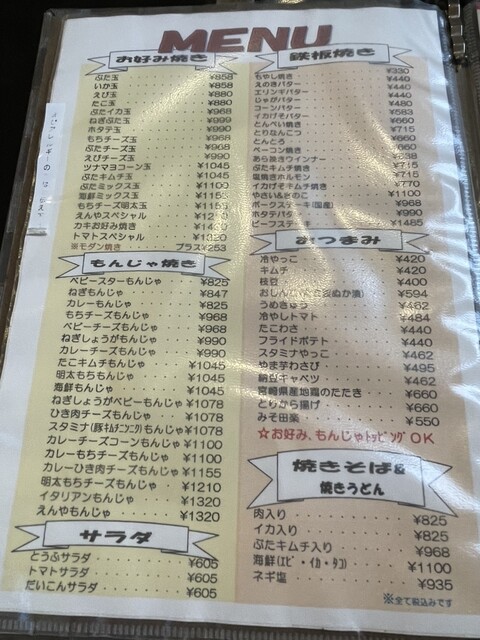 MENU
お好み焼き
ぶた玉 ¥858
いか玉 ¥858
えび玉 ¥880
たこ玉 ¥880
ぶたイカ玉 ¥968
ねぎぶた玉 ¥999
ホタテ玉 ¥990
もちチーズ玉 ¥968
ぶたチーズ玉 ¥968
えびチーズ玉 ¥990
ツナマヨコーン玉 ¥1045
ぶたキムチ玉 ¥1045
ぶたミックス玉 ¥1100
海鮮ミックス玉
もちチーズ明太玉
えんやスペシャル
カキお好み焼き
トマトスペシャル ¥1320
※モダン焼き プラス¥253
もんじゃ焼き
ベビースターもんじゃ ¥825
ねぎもんじゃ ¥847
カレーもんじゃ ¥825
もちチーズもんじゃ ¥968
ベビーチーズもんじゃ ¥968
ねぎしょうがもんじゃ ¥990
カレーチーズもんじゃ ¥990
たこキムチもんじゃ ¥1045
明太もちもんじゃ ¥1045
海鮮もんじゃ ¥1045
ねぎしょうがベビーもんじゃ ¥1078
ひき肉チーズもんじゃ ¥1078
スタミナ(豚ｷﾑﾁﾆﾝﾆｸ)もんじゃ ¥1078
カレーチーズコーンもんじゃ ¥1100
カレーもちチーズもんじゃ ¥1100
カレーひき肉チーズもんじゃ ¥1155
明太もちチーズもんじゃ ¥1210
イタリアンもんじゃ ¥1320
えんやもんじゃ ¥1320
サラダ
とうふサラダ ¥605
トマトサラダ ¥605
だいこんサラダ ¥605
鉄板焼き
もやし焼き ¥330
えのきバター
エリンギバター ¥440
じゃがバター ¥440
コーンバター ¥480
イカげそバター ¥583
とんぺい焼き ¥660
とりなんこつ ¥715
とんとろ ¥660
ベーコン焼き ¥660
あら挽きウインナー
ぶたキムチ焼き ¥715
塩焼きホルモン ¥715
イカげそキムチ焼き ¥770
やさい&きのこ ¥1100
ポークステーキ(国産) ¥968
ホタテバター ¥990
ビーフステーキ ¥1485
おつまみ
冷やっこ ¥420
キムチ ¥420
枝豆 ¥400
¥594
¥462
冷やしトマト ¥484
たこわさ ¥440
フライドポテト ¥440
スタミナやっこ ¥462
やま芋わさび ¥495
納豆キャベツ ¥462
宮崎県産地鶏のたたき ¥660
とりから揚げ ¥660
みそ田楽 ¥550
☆お好み、もんじゃﾄｯﾋﾟﾝｸﾞOK
焼きそば&
焼きうどん
肉入り ¥825
イカ入り ¥825
ぶたキムチ入り ¥968
海鮮(ｴﾋﾞ・ｲｶ・ﾀｺ) ¥1100
ネギ塩 ¥935
※全て税込みです